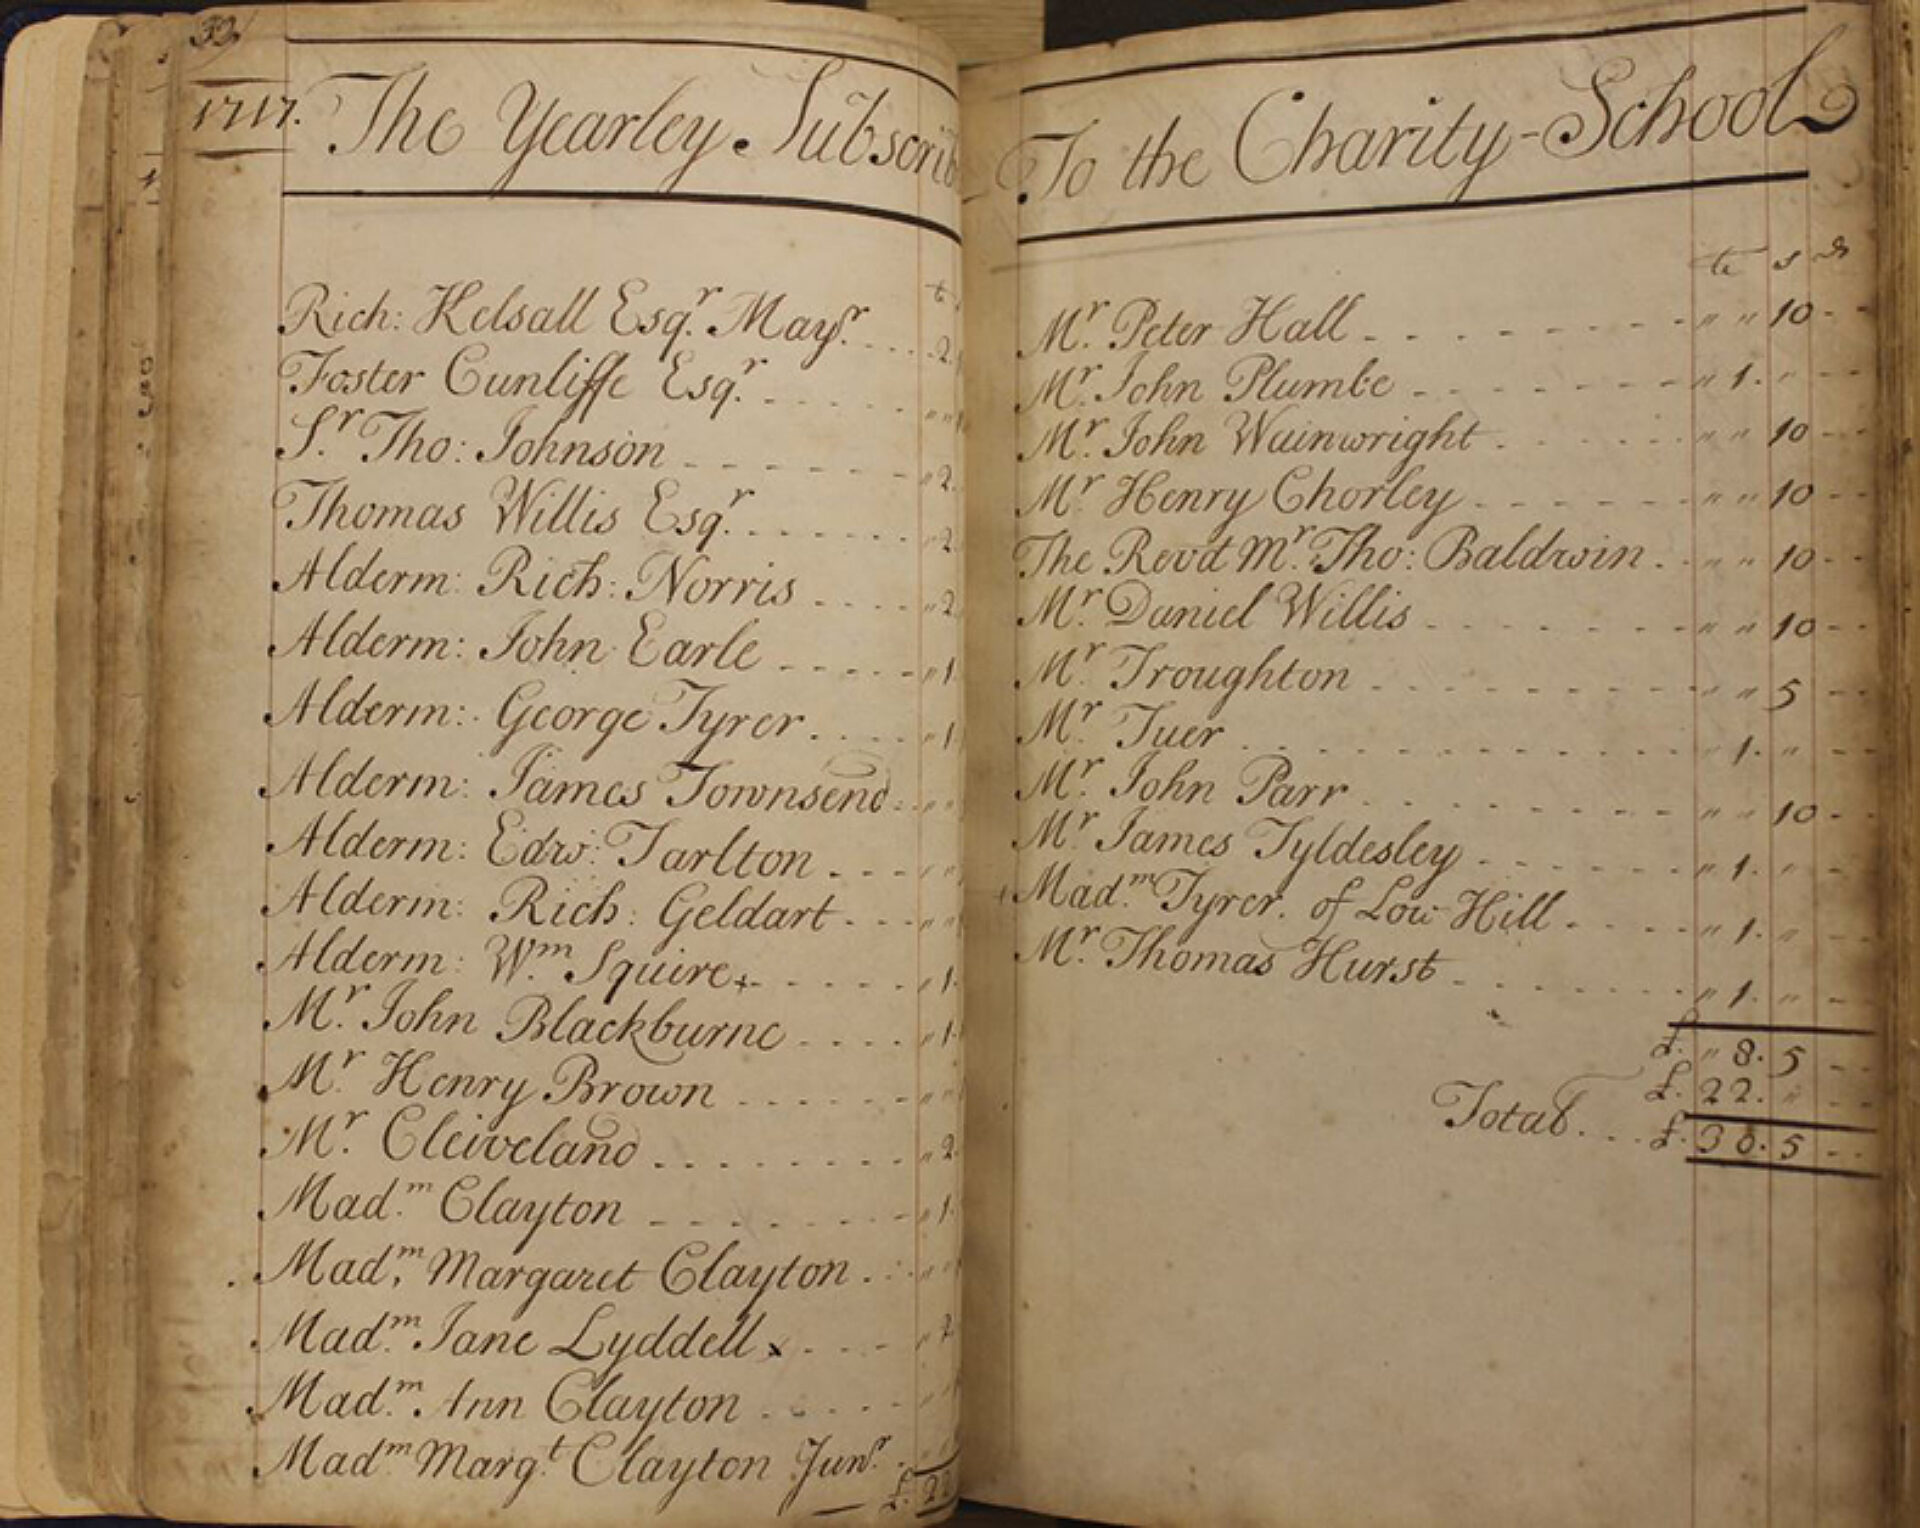 39
1717. The Yearley Subscrib
li
Rich: Kelsall Esqr. Mayr. .... 2
Foster Cunliffe Esqr. ......
Sr. Tho: Johnson ------ "2.
Thomas Willis Esqr. ...... "2
Alderm: Rich: Norris .... "2
Alderm: John Earle ----- "1
Alderm: George Tyrer. .... "1
Alderm: James Townsend.. ""
Alderm: Edw: Tarlton .--- ""
Alderm: Rich: Geldart --- ""
Alderm: Wm. Squire+ ..... "1.
Mr. John Blackburne .... "1.
Mr. Henry Brown ...... ""
Mr. Cleiveland ........ "2.
Madm. Clayton -------- "1.
Madm. Margaret Clayton ... ""
Madm. Jane Lyddell x ... "2
Madm. Ann Clayton .....
Madm Margt. Clayton Junr. .
£. 22
To the Charity-School
li s d
Mr. Peter Hall - - - - - - - - " " 10 - -
Mr. John Plumbe - - - - - - - " 1. " - -
Mr. John Wainwright . . . . . . " " 10 - -
Mr. Henry Chorley - - - - - - " " 10 - -
The Revd Mr. Tho: Baldwin . - " " 10 - -
Mr. Daniel Willis - - - - - - - " " 10 - -
Mr. Troughton - - - - - - - - " " 5 - -
Mr. Tuer . . . . . . . . . . . " 1. " - -
Mr. John Parr . . . . . . . . " " 10 - -
Mr. James Tyldesley - - - - - - " 1. " -
Madm. Tyrer. of Low Hill - - - - " 1. " - -
Mr. Thomas Hurst - - - - - - - " 1. " -
£. " 8. 5 - -
£. 22. " - -
Total. . . . £. 30. 5 - -